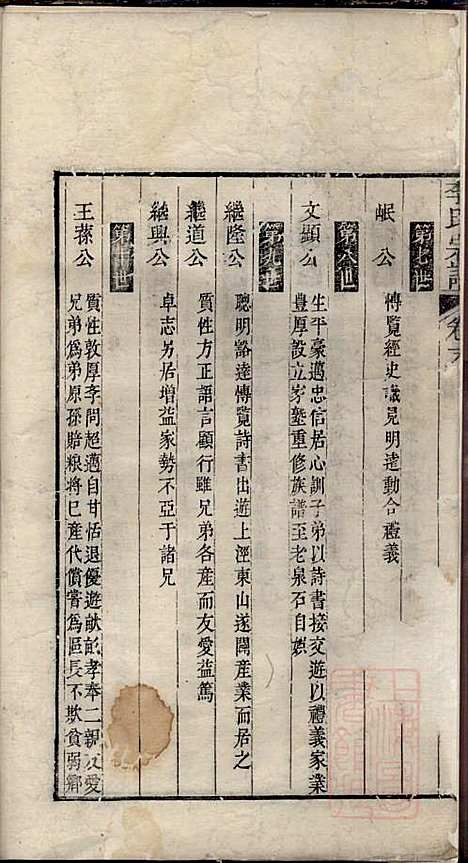 李氏宗譜 卷六
第七世
岷公
博覽經史識見明達動合禮義
第八世
文顯公
生平豪邁忠信居心訓子弟以詩書接交遊以禮義家業
豐厚設立家塾重修族譜至老泉石自娛
第九世
繼隆公
聰明豁達博覽詩書出遊上涇東山遂闢產業而居之
繼道公
質性方正語言顧行雖兄弟各產而友愛益篤
繼興公
卓志另居增益家勢不亞于諸兄
第十世
王蓀公
質性敦厚李問超邁自甘恬退優遊献畝孝奉二親友愛
兄弟為弟原孫賠粮將已產代償嘗為區長不欺貧弱鄉